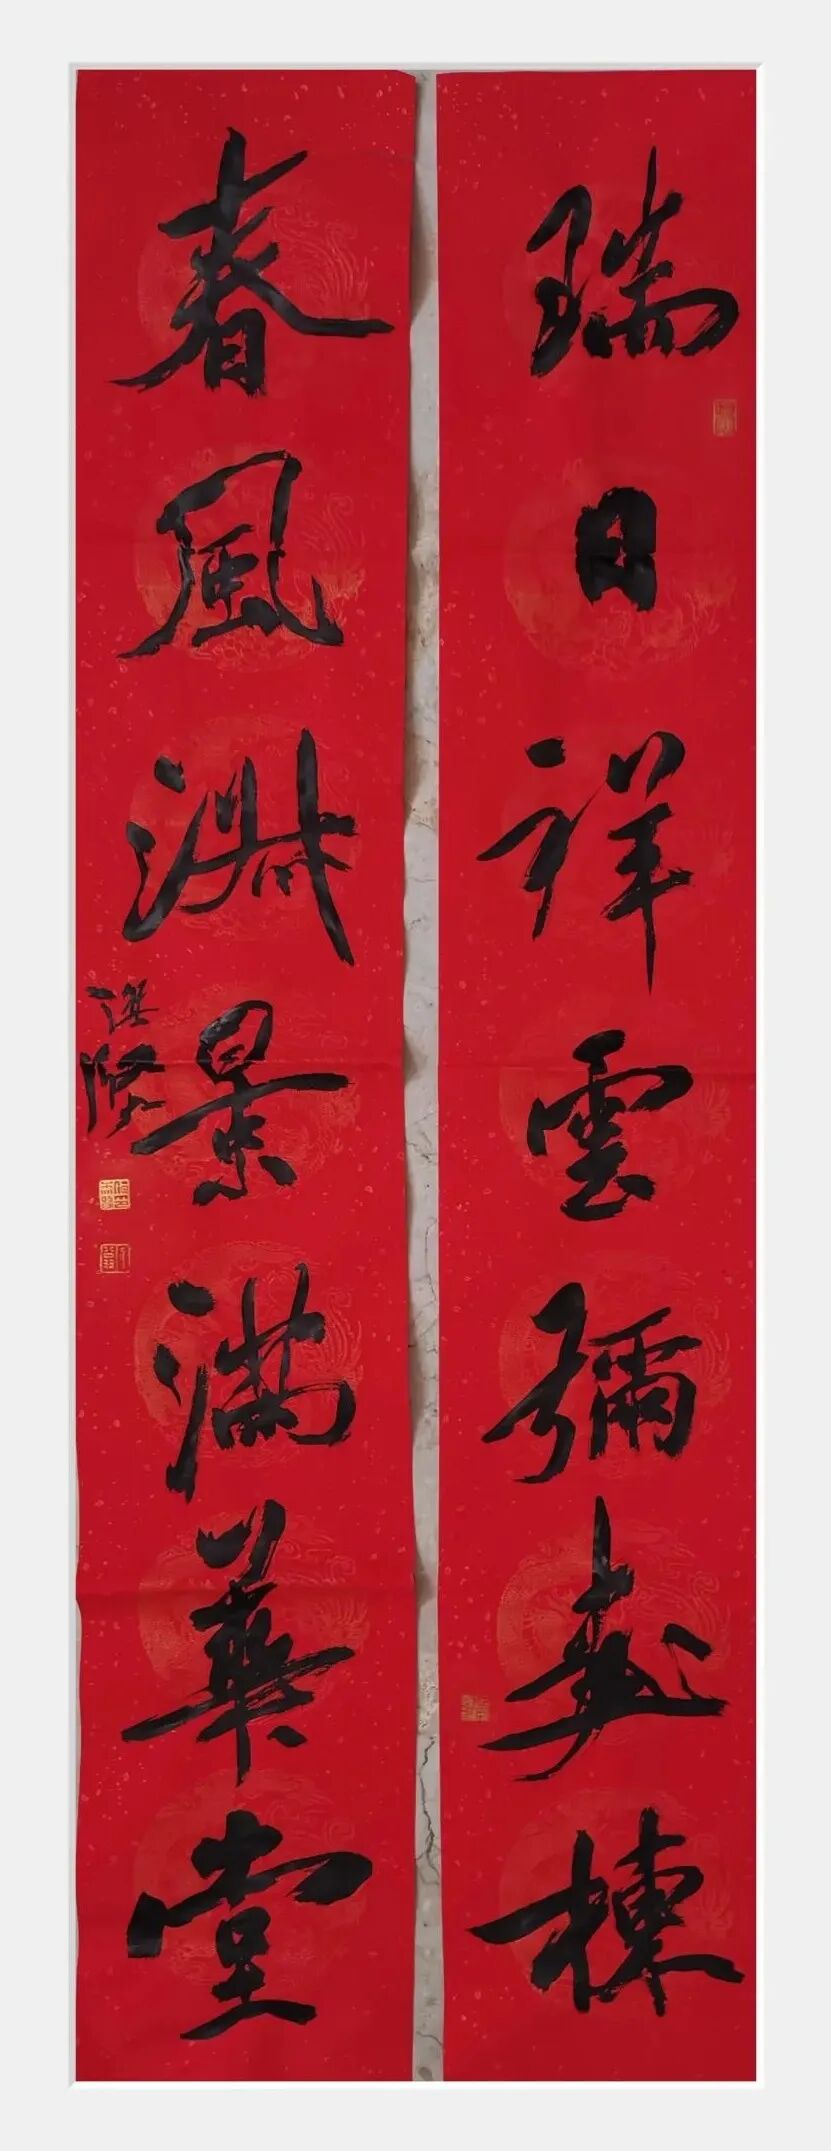 瑞日祥雲彌畫棟
春風淑景滿華堂